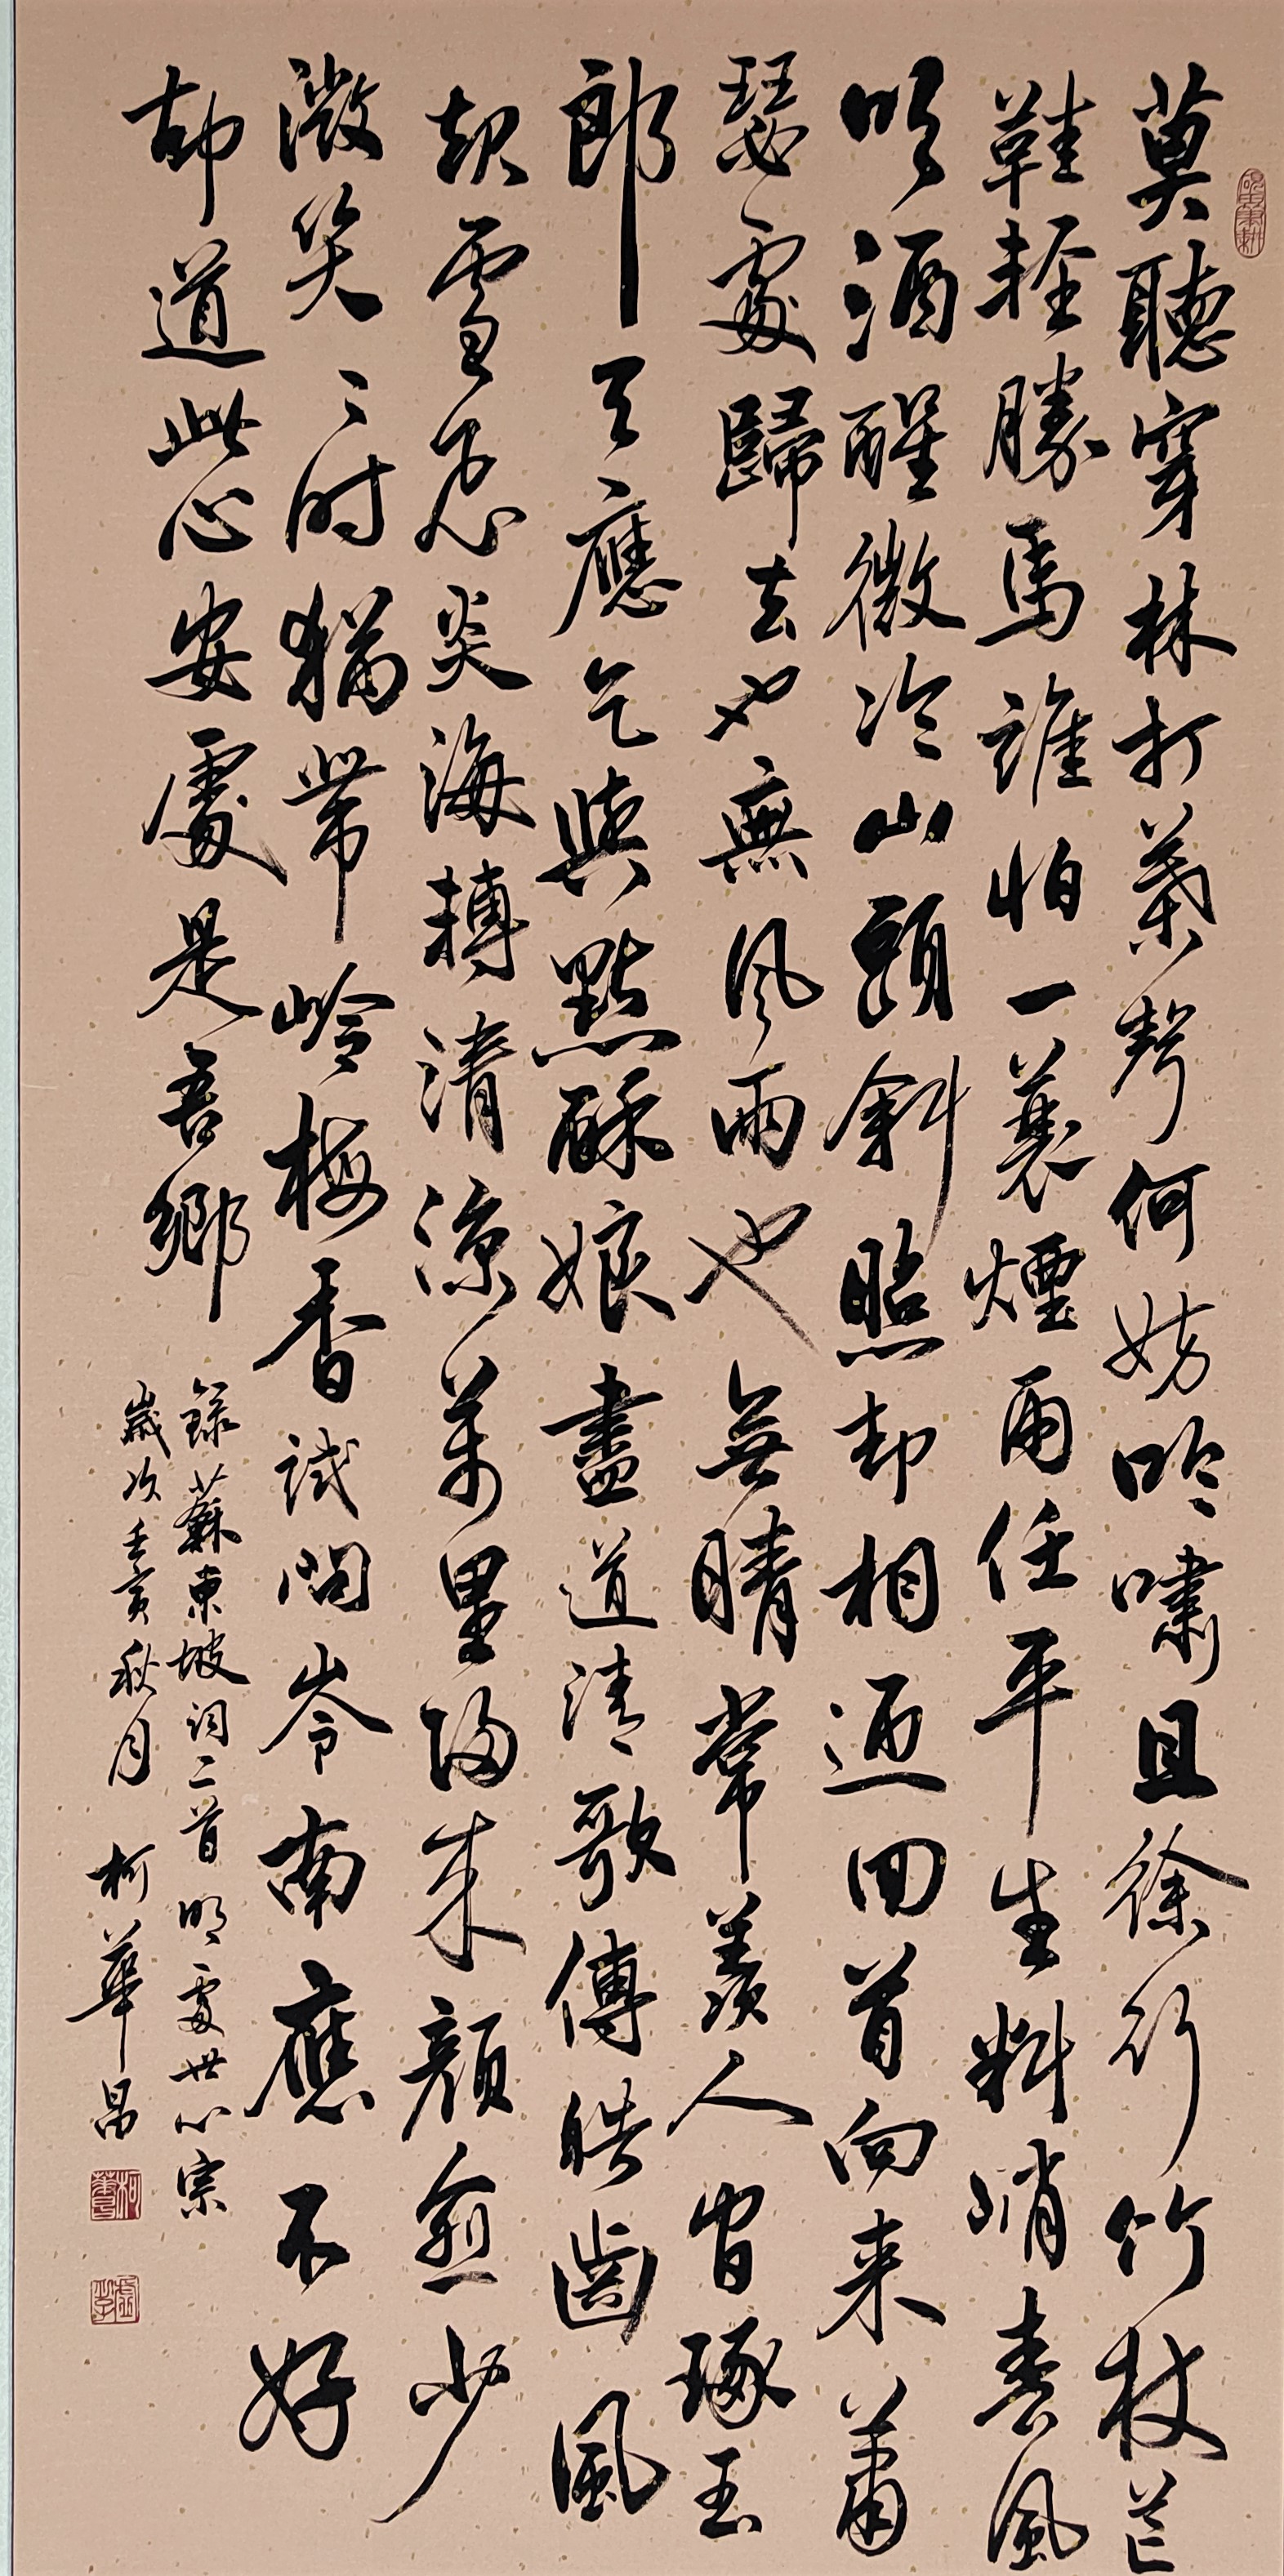 莫聽穿林打葉聲何妨吟嘯且徐行竹杖芒
鞋輕勝馬誰怕一蓑煙雨任平生料峭春風
吹酒醒微冷山頭斜照却相迎回首向来蕭
瑟處歸去也無風雨也無晴常羨人間琢玉
郎天應乞與點酥娘盡道清歌傳皓齒風
起雪飛炎海轉清涼萬里歸来顏愈少
微笑笑時猶帶嶺梅香試問岺南應不好
却道此心安處是吾鄉
錄蘇東坡詞二首明處世心宗
歲次壬寅秋月 柯華昌